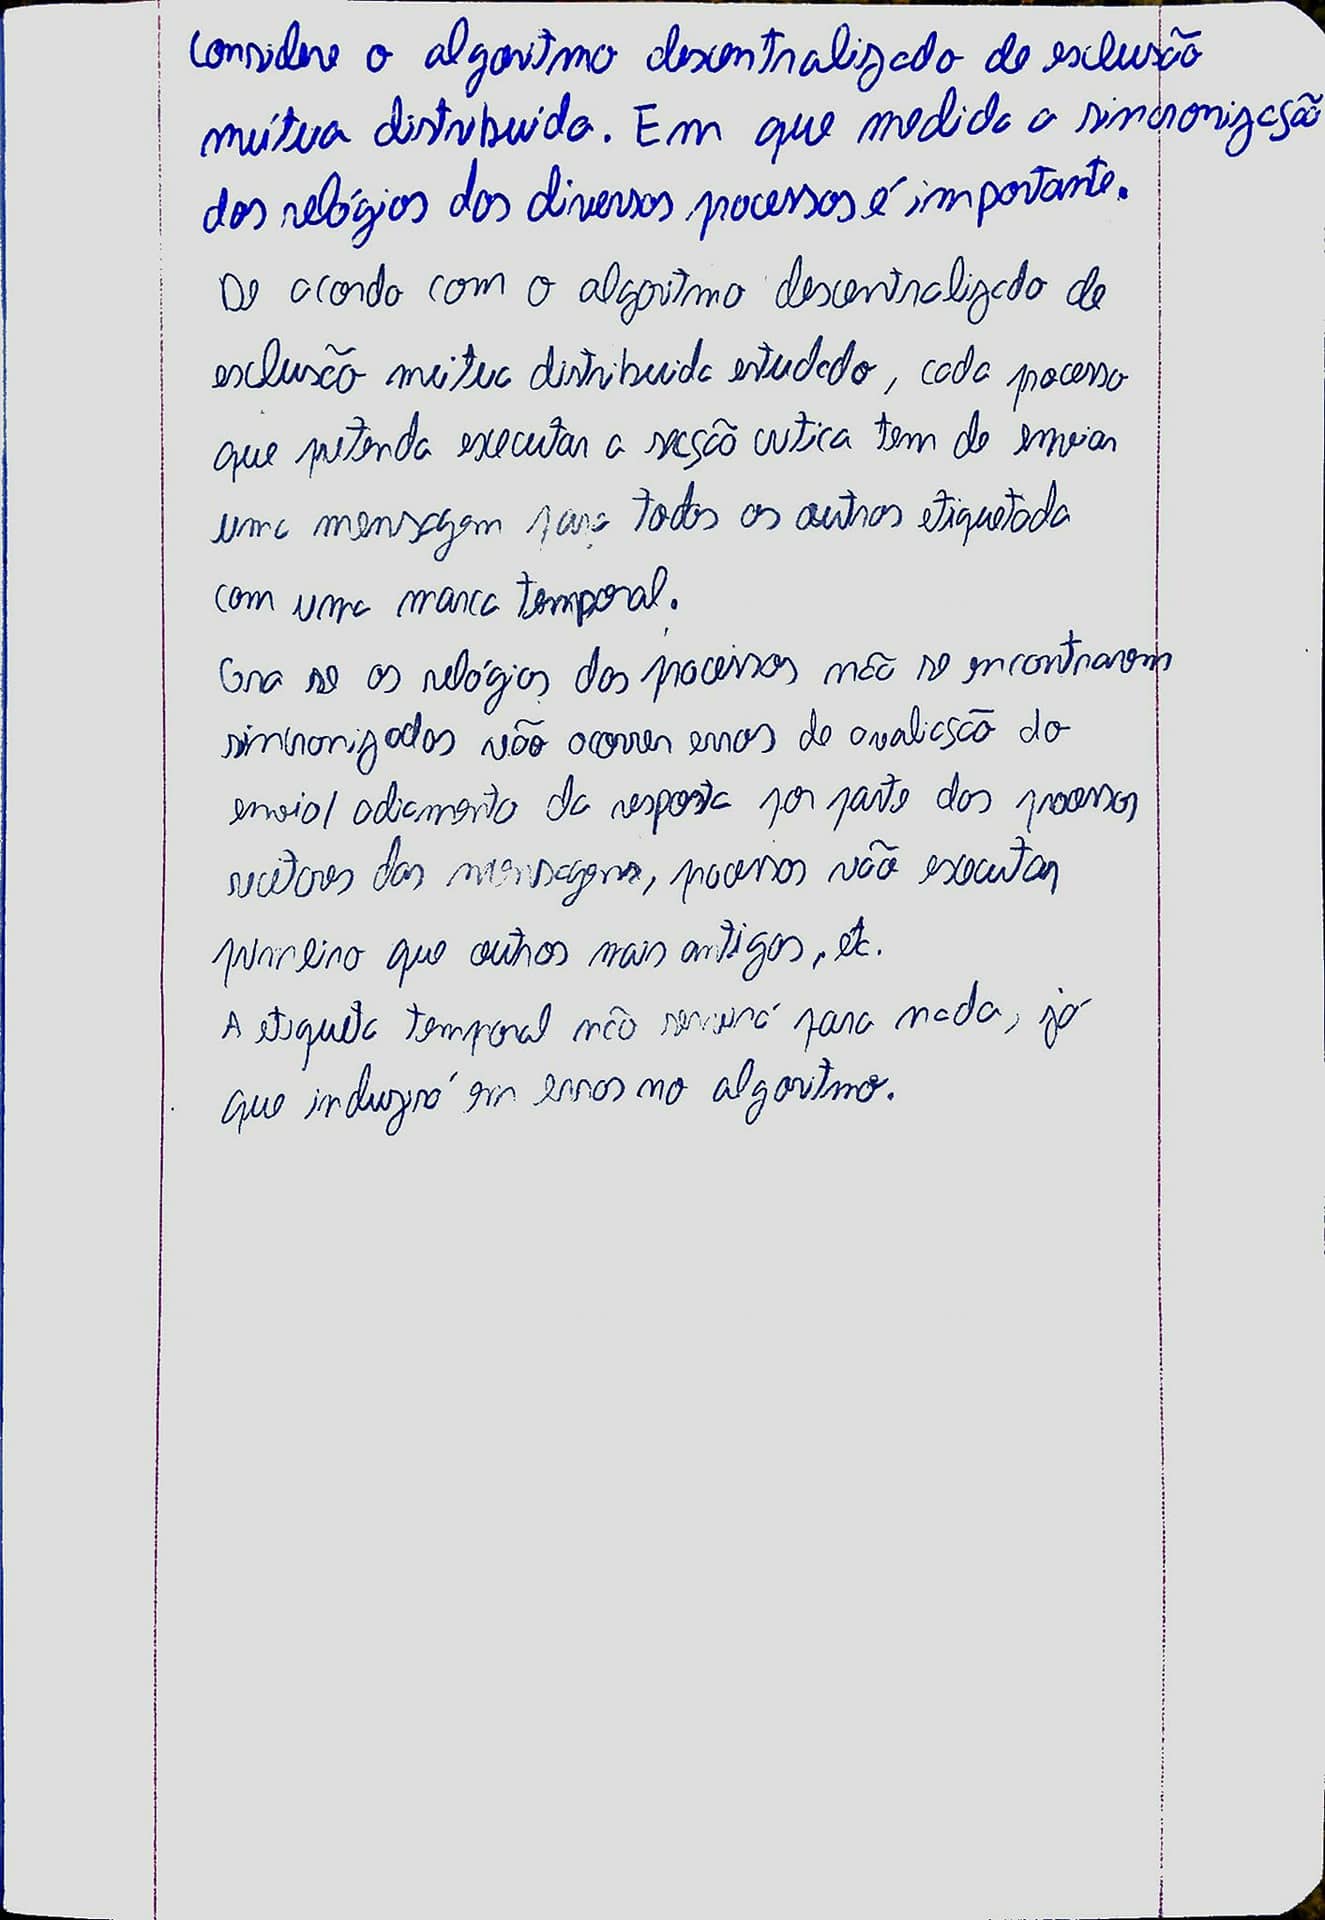 Considere o algoritmo descentralizado de esclusão
mútua distribuída. Em que medida a sincronização
dos relógios dos diversos processos é importante.
De acordo com o algoritmo descentralizado de
esclusão mútua distribuida estudado, cada processo
que pretenda executar a secção critica tem de enviar
uma mensagem para todos os outros etiquetada
com uma marca temporal.
Ora se os relógios dos processos não se encontrarem
sincronizados vão ocorrer erros de avaliação do
envio/adiamento da resposta por parte dos processos
recetores das mensagens, processos vão executar
primeiro que outros mais antigos, etc.
A etiqueta temporal não servirá para nada, já
que induzirá em erros no algoritmo.